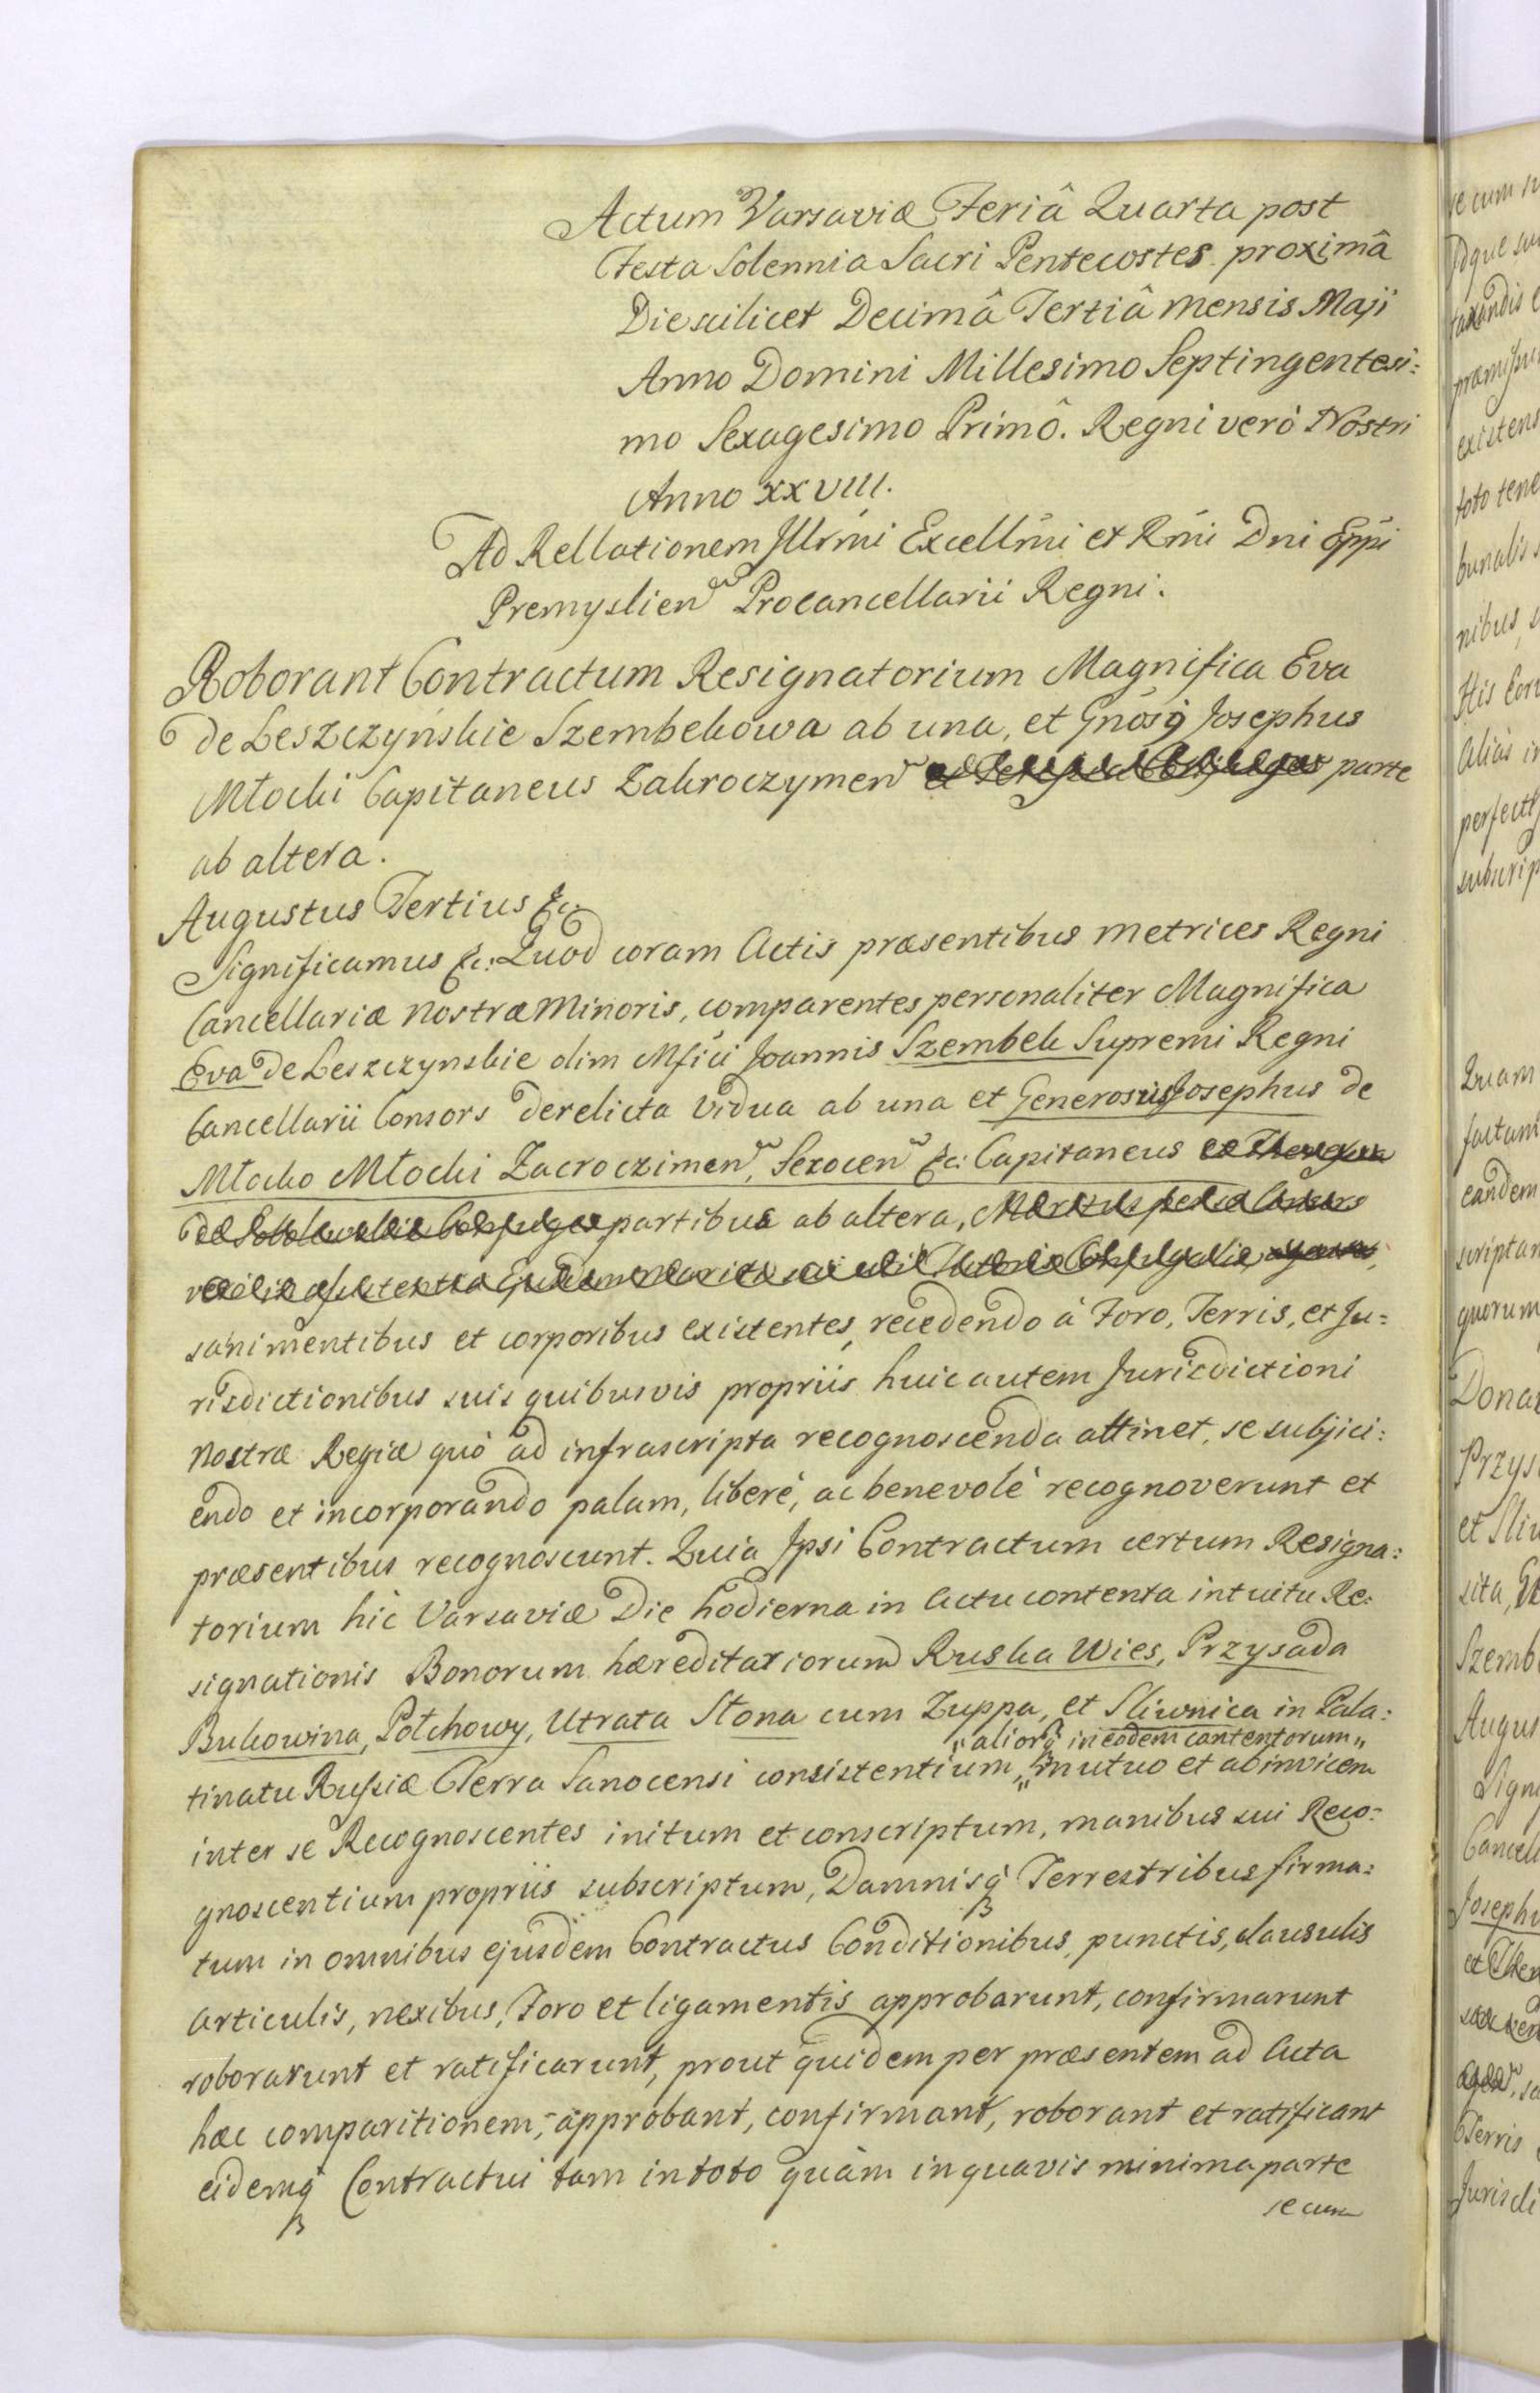 Actum Varsaviæ Feriâ Quarta post
Festa Solennia Sacri Pentecostes proximâ
Die scilicet Decimâ Tertiâ mensis Maji
Anno Domini Millesimo Septingentesi:
mo Sexagesimo Primô. Regni verò Nostri
Anno XXVIII.
Ad Rellationem Illrmi Excellmi et Rmi Dni Eppi
Premyslien Procancellarii Regni.
Roborant Contractum Resignatorium Magnifica Eva
de Leszczyńskie Szembekowa ab una, et Gnosq Josephus
Młocki Capitaneus Zakroczymen parte
ab altera.
Augustus Tertius &c.
Significamus &c: Quod coram Actis præsentibus metrices Regni
Cancellariæ nostræ Minoris, comparentes personaliter Magnifica
Eva de Leszczynskie olim Mfici Joannis Szembek Supremi Regni
Cancellarii Consors derelicta vidua ab una et Generosus Josephus de
Młocko Młocki Zacroczimen, Serocen &c: Capitaneus
partibus ab altera,
sani mentibus et corporibus existentes, recedendo à Foro, Terris, et Ju:
risdictionibus suis quibusvis propriis huic autem Jurisdictioni
nostræ Regiæ quò ad infrascripta recognoscenda attinet, se subjici:
endo et incorporando palam, liberè, ac benevolè recognoverunt et
præsentibus recognoscunt. Quia Ipsi Contractum certum Resigna:
torium hic Varsaviæ Die hodierna in Actu contenta intuitu Re:
signationis Bonorum hæreditariorum Ruska Wies, Przysada
Bukowina, Połchowy, Utrata Słona cum Zuppa, et Sliwnica in Pala:
„aliorq in eodem contentorum„
tinatu Russiæ Terra Sanocensi consistentium, „mutuo et abinvicem
inter se Recognoscentes initum et conscriptum, manibus sui Reco:
gnoscentium propriis subscriptum, Damnisq Terrestribus firma:
tum in omnibus ejusdem Contractus Conditionibus, punctis, clausulis
articulis, nexibus, Foro et ligamentis approbarunt, confirmarunt
roborarunt et ratificarunt, prout quidem per præsentem ad Acta
hæc comparitionem, approbant, confirmant, roborant et ratificant
eidemq Contractui tam in toto quàm in quavis minima parte
se cum